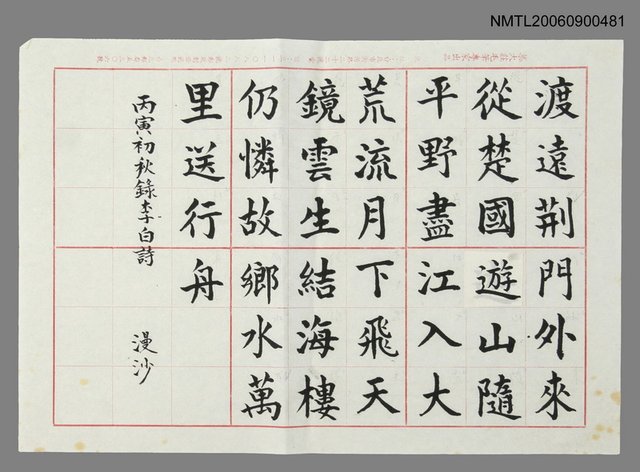 NMTL20060900481
渡遠荆門外來
從楚國遊山隨
平野盡江入大
荒流月下飛天
鏡雲生結海樓
仍憐故鄉水萬
里送行舟
丙寅初秋錄李白詩
漫沙